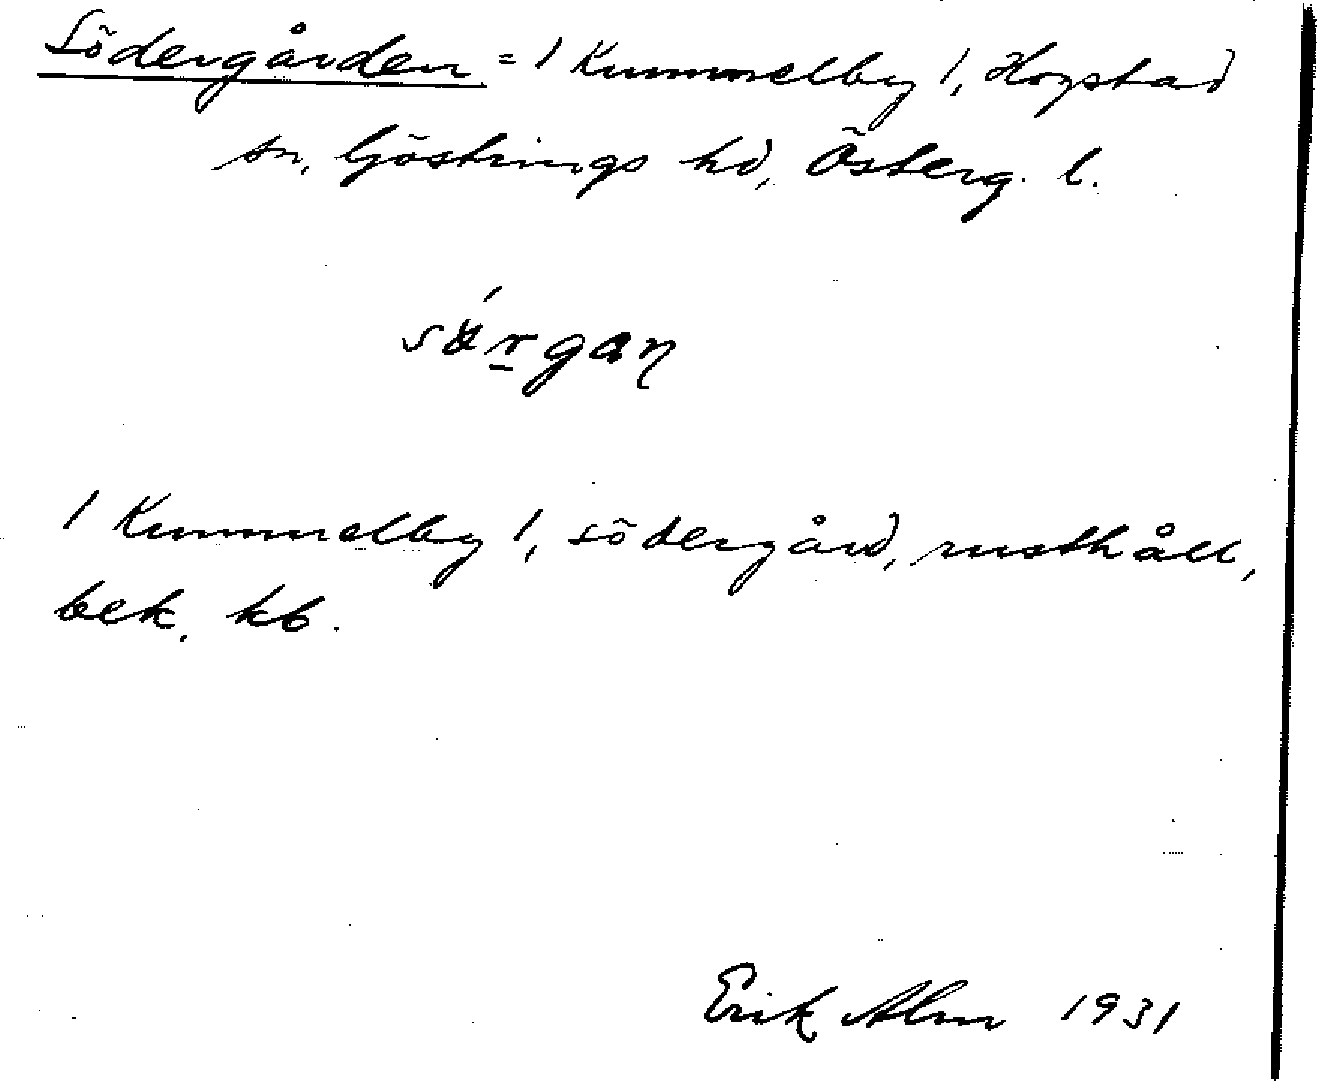 Södergården = 1 Kummelby 1, Hogstad
sn, Göstrings hd, Österg. l.
1 Kummelby 1, södergård, rusthåll,
bek. kb.
Erik Alm 1931